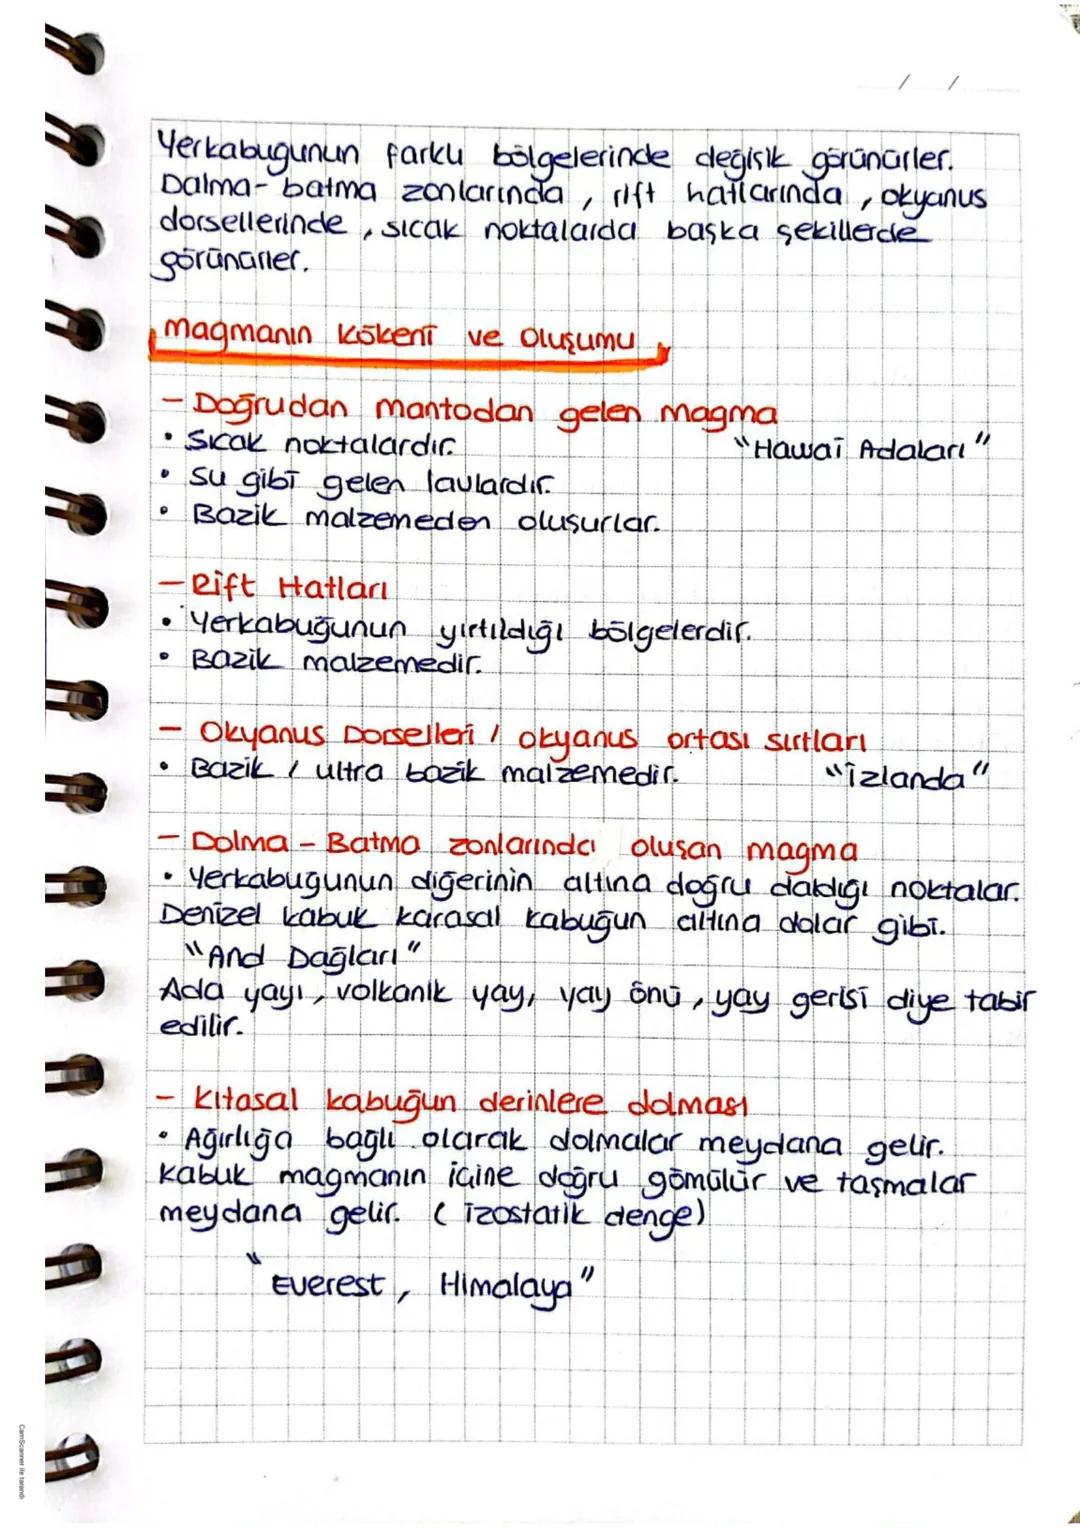 / /
Yerkabugunun farklı bölgelerinde değişik görünürler.
Dalma-batma zonlarında, rift hatlarında, okyanus
dorsellerinde, sıcak noktalarda başka şekillerde
görünürler.
Magmanın Kökeni ve Oluşumu
- Doğrudan mantodan gelen magma
• Sıcak noktalardır. "Hawai Adaları"
• Su gibi gelen lavlardır.
• Bazik malzemeden oluşurlar.
- Rift Hatları
• Yerkabuğunun yırtıldığı bölgelerdir.
• Bazik malzemedir.
- Okyanus Dorselleri / okyanus ortası sırtları
• Bazik / ultra bazik malzemedir. "izlanda"
- Dalma - Batma zonlarında oluşan magma
• Yerkabugunun diğerinin altına doğru daldığı noktalar.
Denizel kabuk karasal kabuğun altına dalar gibi.
"And Dağları"
Ada yayı, volkanik yay, yay önü, yay gerisi diye tabir
edilir.
- Kıtasal kabuğun derinlere dalması
• Ağırlığa bağlı olarak dalmalar meydana gelir.
Kabuk magmanın içine doğru gömülür ve taşmalar
meydana gelir. (izostatik denge)
"Everest, Himalaya"
CamScanner ile tarandı